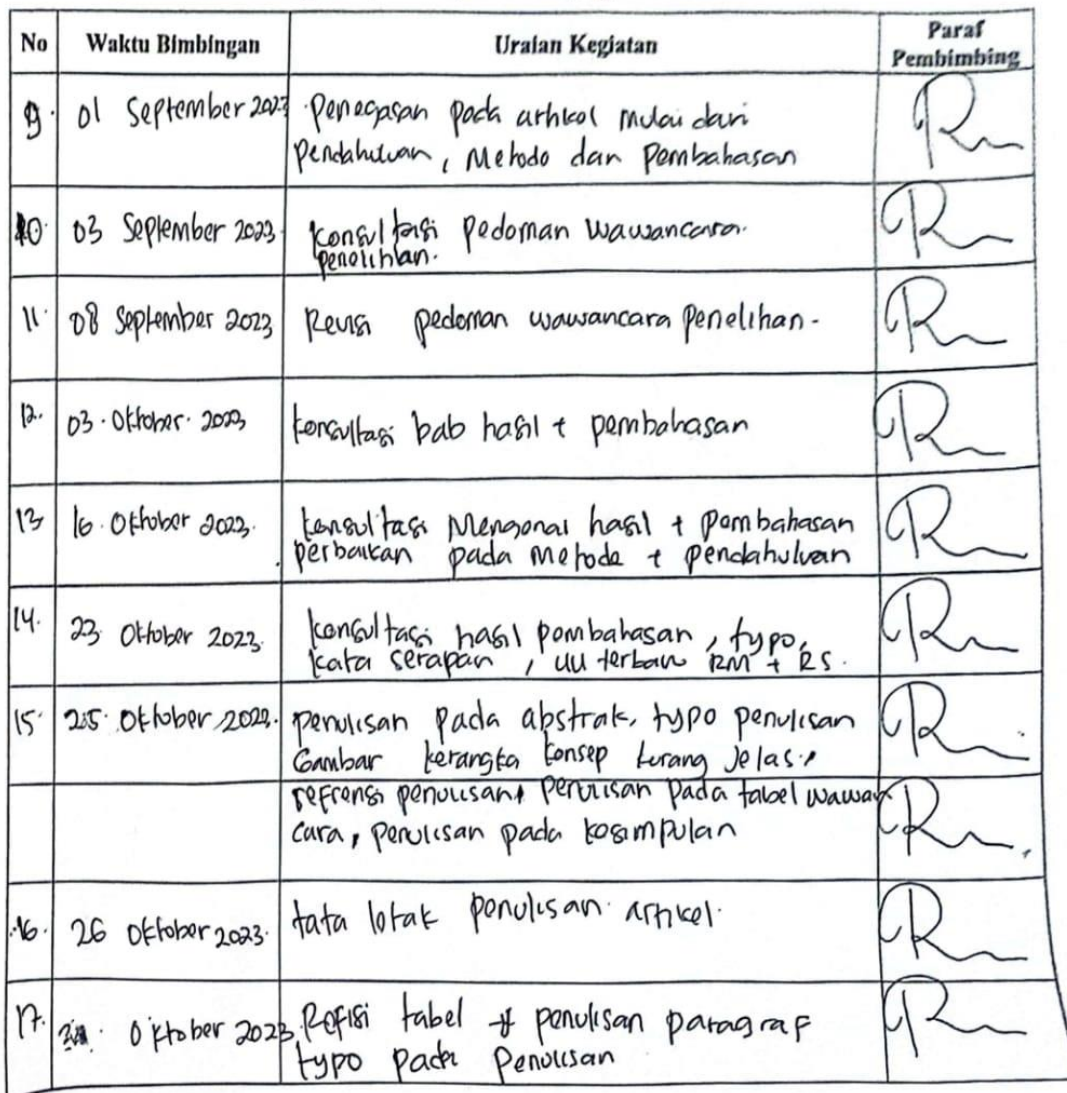 No Waktu Bimbingan Uraian Kegiatan Paraf Pembimbing
9. 01 September 2023 Penegasan pada artikel mulai dari
Pendahuluan, Metode dan Pembahasan
10. 03 September 2023 konsultasi Pedoman wawancara.
penelitian.
11. 08 September 2023 Revisi pedoman wawancara penelitian-
12. 03. Oktober. 2023 konsultasi bab hasil + pembahasan
13 16. Oktober 2023. konsultasi Mengenai hasil + pembahasan
perbaikan pada metode + pendahuluan
14. 23 Oktober 2023. konsultasi hasil pembahasan, typo,
kata serapan, uu terbaru RM + RS.
15. 25. Oktober 2023. penulisan pada abstrak, typo penulisan
Gambar kerangka konsep kurang jelas,
refrensi penulisan, penulisan pada tabel wawan
cara, penulisan pada kesimpulan
16. 26 Oktober 2023. tata letak penulisan artikel.
17. Oktober 2023 Refisi tabel + penulisan paragraf
typo pada Penulisan